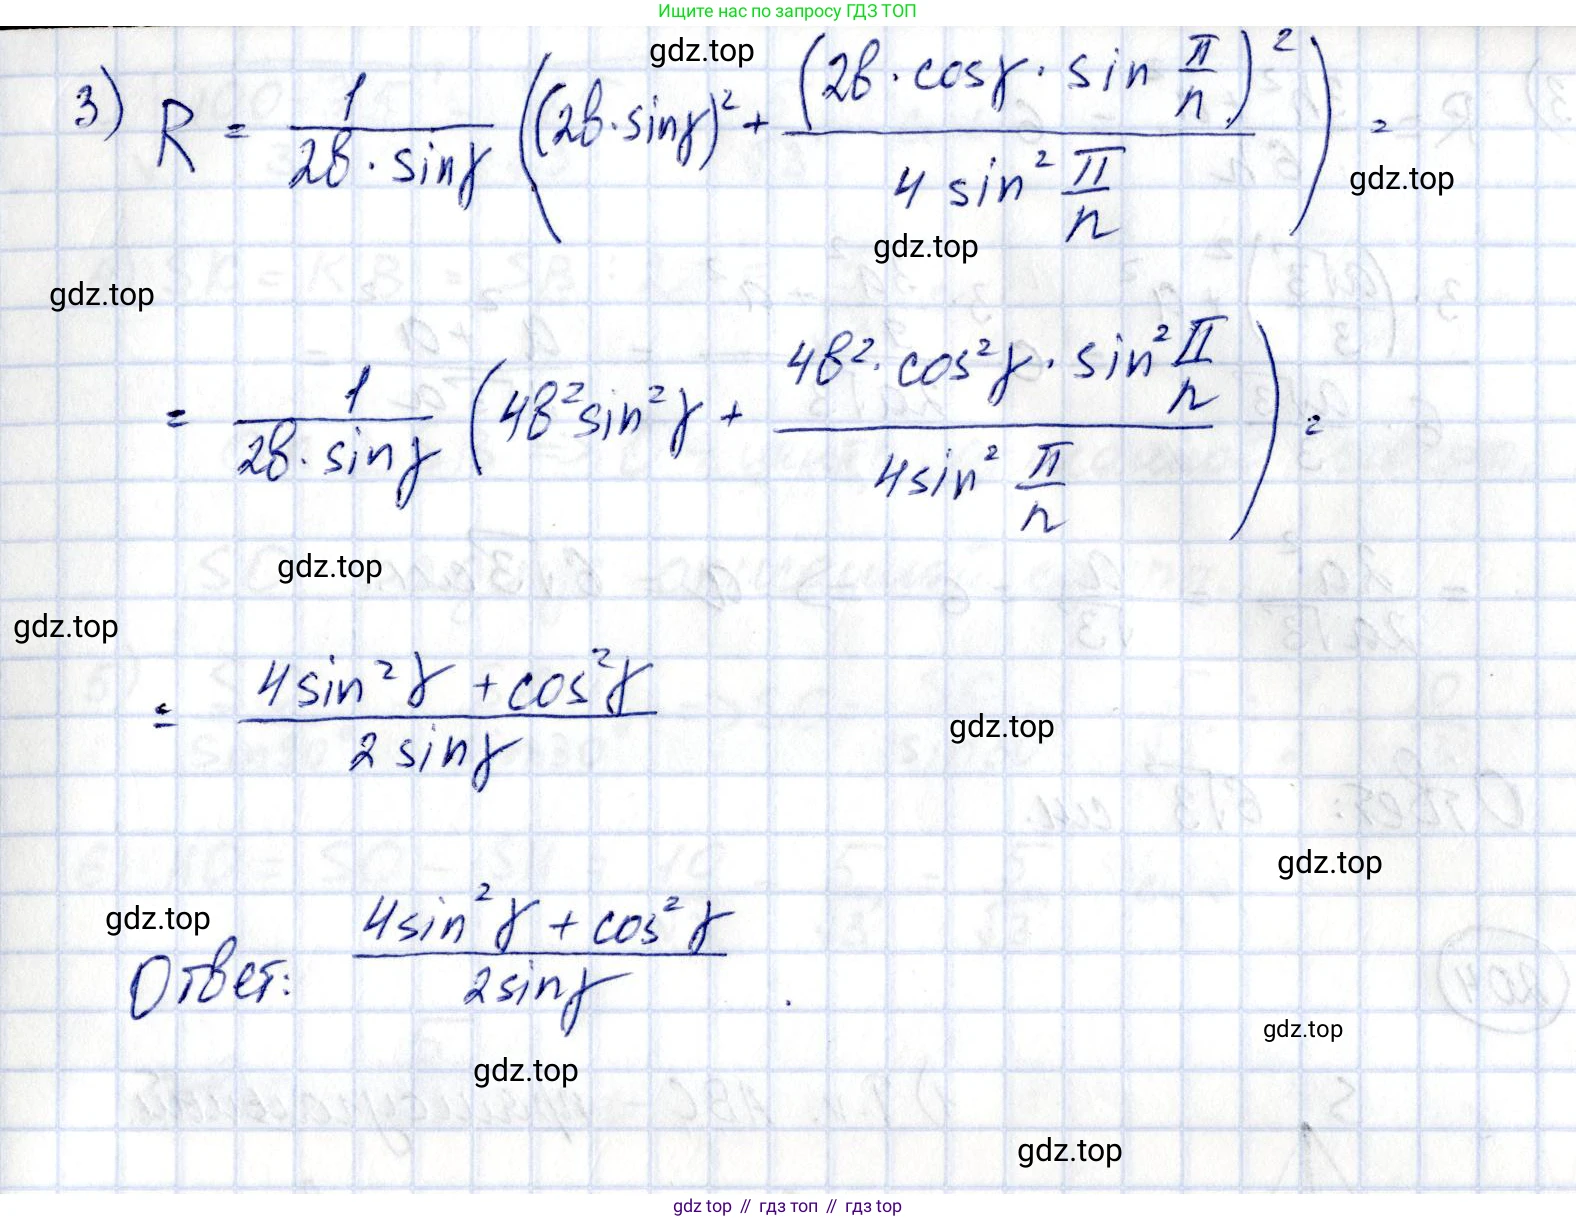 Ищите нас по запросу ГДЗ ТОП
gdz.top
3) R = 1/(2b · sinγ) ((2b · sinγ)² + (2b · cosγ · sin π/n)²/(4 sin² π/n)) =
gdz.top
gdz.top
gdz.top
= 1/(2b · sinγ) (4b² sin²γ + (4b² · cos²γ · sin² π/n)/(4sin² π/n)) =
gdz.top
gdz.top
= (4sin²γ + cos²γ)/(2 sinγ)
gdz.top
gdz.top
gdz.top
Ответ: (4sin²γ + cos²γ)/(2sinγ) .
gdz.top
gdz.top
gdz.top
gdz top // гдз топ // гдз top